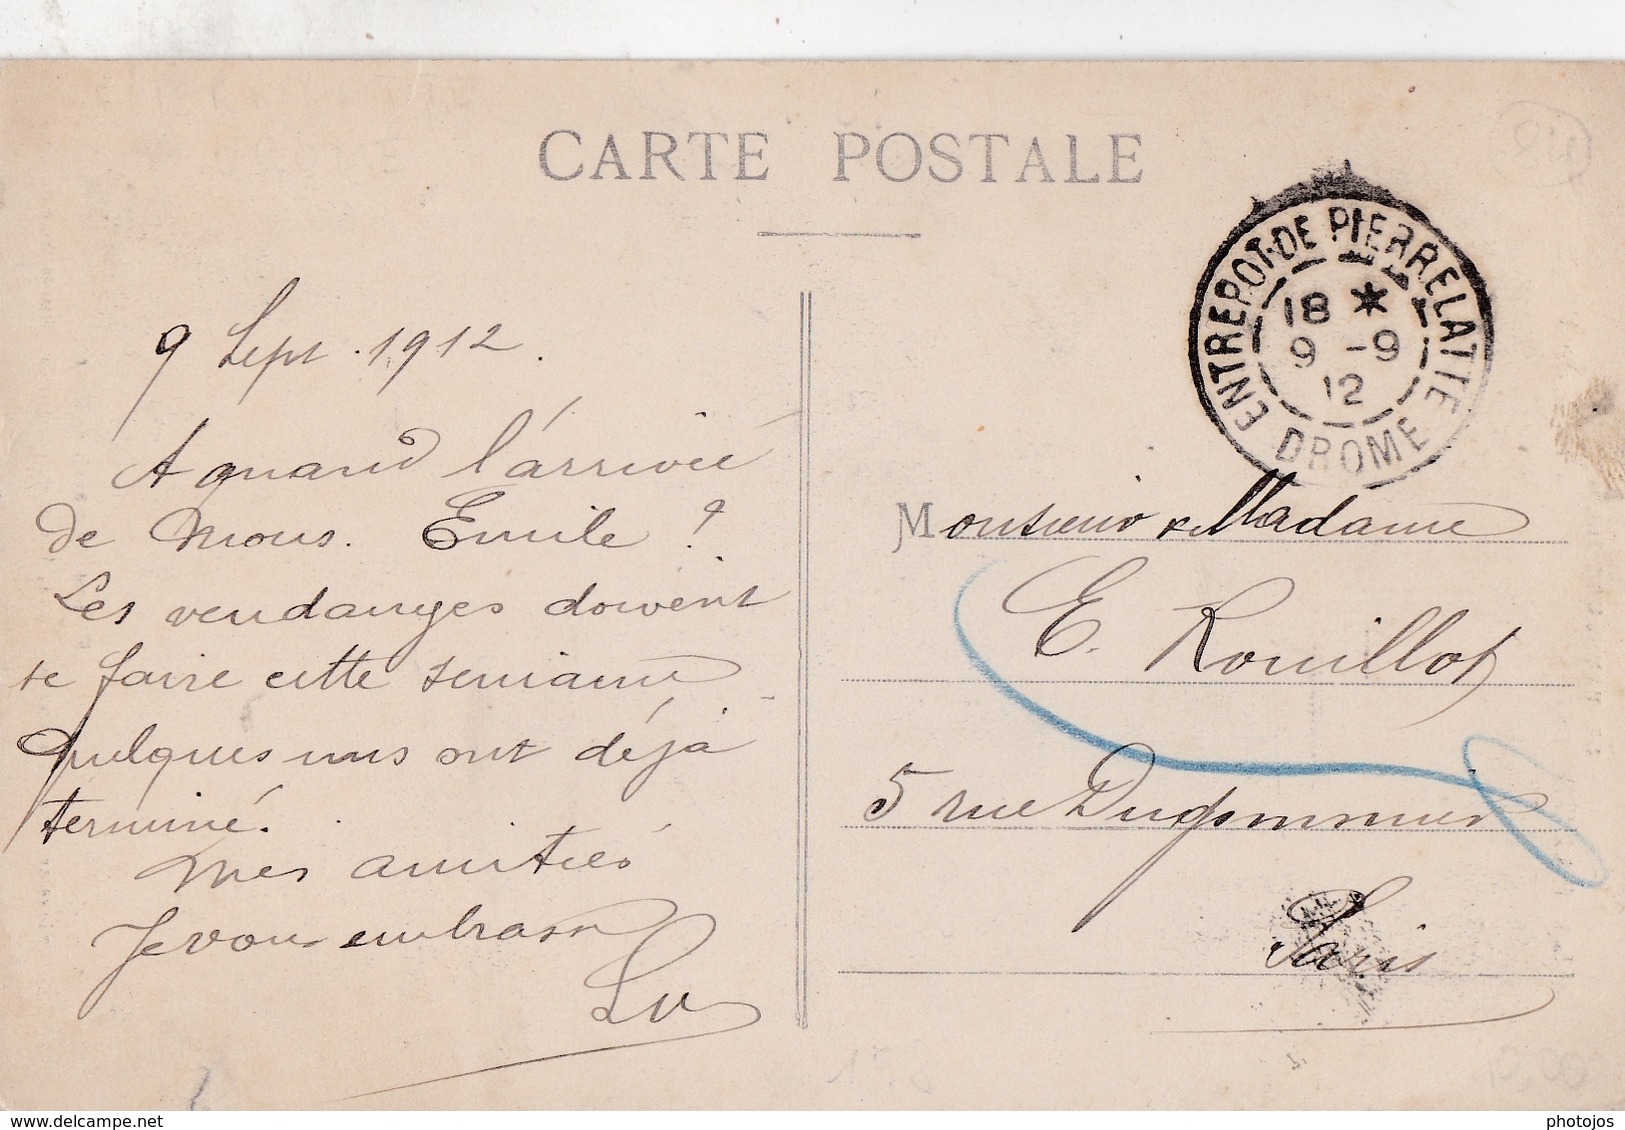 CARTE POSTALE
ENTREPOT·DE PIERRELATTE
18 *
9 -9
12
DROME
9 Sept. 1912.
A quand l'arrivée
de Mons. Emile ?
Les vendanges doivent
se faire cette semaine
quelques uns ont déjà
terminé.
Mes amitiés
Je vous embrasse
Monsieur & Madame
E. Rouillot
5 rue Dugommier
Paris
www.delcampe.net
photojos